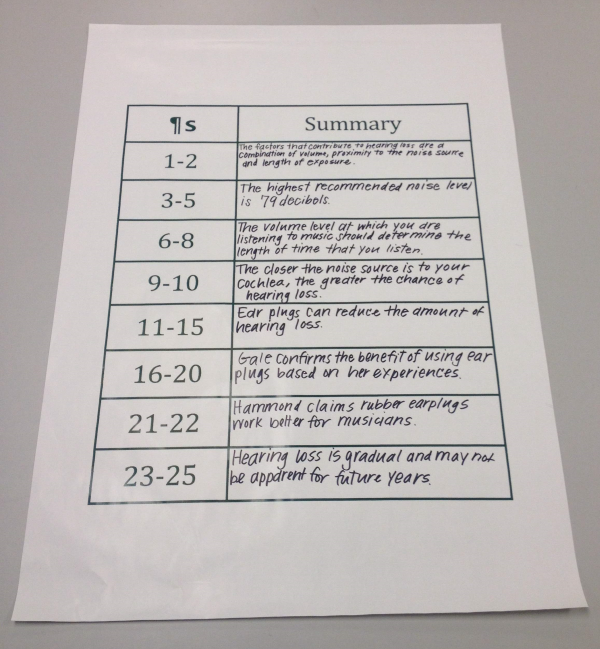 ¶s Summary
1-2
The factors that contribute to hearing loss are a
combination of volume, proximity to the noise source
and length of exposure.
3-5
The highest recommended noise level
is 79 decibels.
6-8
The volume level at which you are
listening to music should determine the
length of time that you listen.
9-10
The closer the noise source is to your
Cochlea, the greater the chance of
hearing loss.
11-15
Ear plugs can reduce the amount of
hearing loss.
16-20
Gale confirms the benefit of using ear
plugs based on her experiences.
21-22
Hammond claims rubber earplugs
work better for musicians.
23-25
Hearing loss is gradual and may not
be apparent for future years.